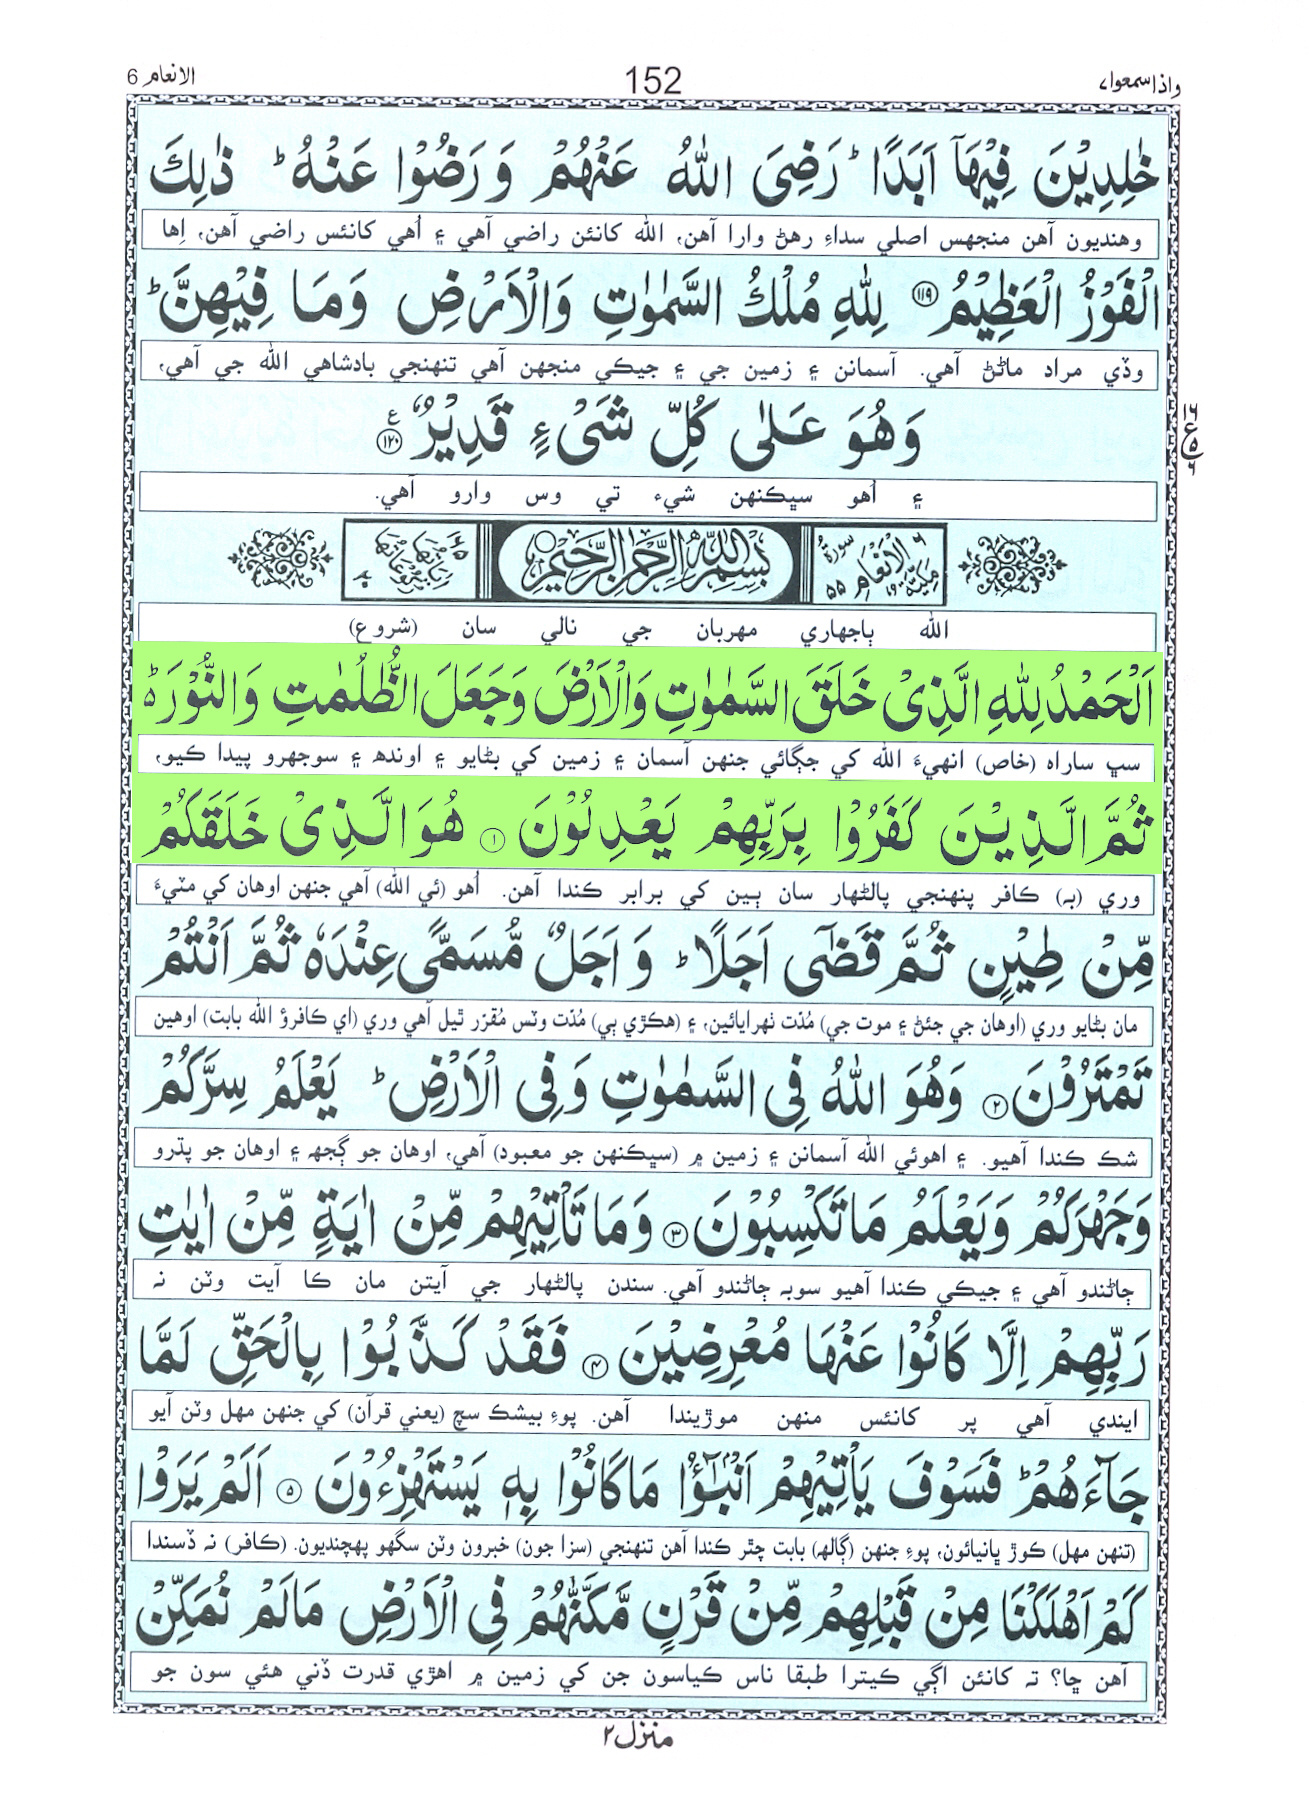 واذا سمعوا ٧ 152 الانعام 6
خٰلِدِيْنَ فِيْهَاۤ اَبَدًا ؕ رَضِىَ اللّٰهُ عَنْهُمْ وَ رَضُوْا عَنْهُ ؕ ذٰلِكَ
وهنديون آهن منجهس اصلي سداءِ رهڻ وارا آهن، الله کائنن راضي آهي ۽ اُهي کائنس راضي آهن، اِها
الْفَوْزُ الْعَظِيْمُ ﴿۱۱۹﴾ لِلّٰهِ مُلْكُ السَّمٰوٰتِ وَالْاَرْضِ وَمَا فِيْهِنَّ ؕ
وڏي مراد ماڻڻ آهي. آسمانن ۽ زمين جي ۽ جيڪي منجهن آهي تنهنجي بادشاهي الله جي آهي،
وَهُوَ عَلٰى كُلِّ شَىْءٍ قَدِيْرٌ ﴿۱۲۰﴾ ع
۽ اُهو سڀڪنهن شيء تي وس وارو آهي.
سورة الانعام مكية بِسْمِ اللّٰهِ الرَّحْمٰنِ الرَّحِيْمِ
الله ٻاجهاري مهربان جي نالي سان (شروع)
اَلْحَمْدُ لِلّٰهِ الَّذِىْ خَلَقَ السَّمٰوٰتِ وَالْاَرْضَ وَجَعَلَ الظُّلُمٰتِ وَالنُّوْرَ ؕ
سڀ ساراه (خاص) انهيءَ الله کي جڳائي جنهن آسمان ۽ زمين کي بڻايو ۽ اونده ۽ سوجهرو پيدا ڪيو،
ثُمَّ الَّذِيْنَ كَفَرُوْا بِرَبِّهِمْ يَعْدِلُوْنَ ﴿۱﴾ هُوَ الَّذِىْ خَلَقَكُمْ
وري (به) ڪافر پنهنجي پالڻهار سان ٻين کي برابر ڪندا آهن. اُهو (ئي الله) آهي جنهن اوهان کي مٽيءَ
مِّنْ طِيْنٍ ثُمَّ قَضٰۤى اَجَلًا ؕ وَ اَجَلٌ مُّسَمًّى عِنْدَهٗ ثُمَّ اَنْتُمْ
مان بڻايو وري (اوهان جي جئڻ ۽ موت جي) مُدّت ٺهرايائين، ۽ (هڪڙي ٻي) مُدّت وٽس مُقرّر ٿيل آهي وري (اي ڪافرؤ الله بابت) اوهين
تَمْتَرُوْنَ ﴿۲﴾ وَهُوَ اللّٰهُ فِى السَّمٰوٰتِ وَفِى الْاَرْضِ ؕ يَعْلَمُ سِرَّكُمْ
شڪ ڪندا آهيو. ۽ اهوئي الله آسمانن ۽ زمين ۾ (سڀڪنهن جو معبود) آهي، اوهان جو ڳجھ ۽ اوهان جو پڌرو
وَجَهْرَكُمْ وَيَعْلَمُ مَا تَكْسِبُوْنَ ﴿۳﴾ وَمَا تَاْتِيْهِمْ مِّنْ اٰيَةٍ مِّنْ اٰيٰتِ
ڄاڻندو آهي ۽ جيڪي ڪندا آهيو سوبه ڄاڻندو آهي. سندن پالڻهار جي آيتن مان ڪا آيت وٽن نه
رَبِّهِمْ اِلَّا كَانُوْا عَنْهَا مُعْرِضِيْنَ ﴿۴﴾ فَقَدْ كَذَّبُوْا بِالْحَقِّ لَمَّا
ايندي آهي پر کانئس منهن موڙيندا آهن. پوءِ بيشڪ سچ (يعني قرآن) کي جنهن مهل وٽن آيو
جَآءَهُمْ ؕ فَسَوْفَ يَاْتِيْهِمْ اَنْۢبٰٓؤُا مَا كَانُوْا بِهٖ يَسْتَهْزِءُوْنَ ﴿۵﴾ اَلَمْ يَرَوْا
(تنهن مهل) ڪوڙ ڀانيائون، پوءِ جنهن (ڳالھ) بابت چٿر ڪندا آهن تنهنجي (سزا جون) خبرون وٽن سگهو پهچنديون. (ڪافر) نه ڏسندا
كَمْ اَهْلَكْنَا مِنْ قَبْلِهِمْ مِّنْ قَرْنٍ مَّكَّنّٰهُمْ فِى الْاَرْضِ مَا لَمْ نُمَكِّنْ
آهن ڇا؟ ته کانئن اڳي ڪيترا طبقا ناس ڪياسون جن کي زمين ۾ اهڙي قدرت ڏني هئي سون جو
منزل ٢